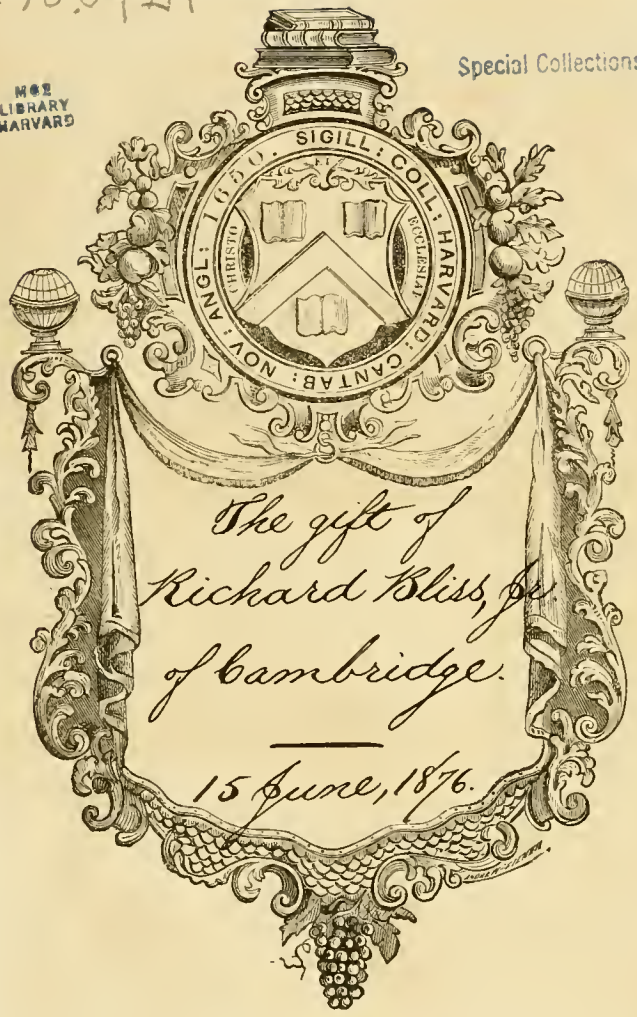 MCZ
LIBRARY
HARVARD
Special Collections
SIGILL: COLL: HARVARD: CANTAB: NOV: ANGL: 1650.
CHRISTO
ECCLESIAE
The gift of
Richard Bliss, Jr
of Cambridge.
15 June, 1876.